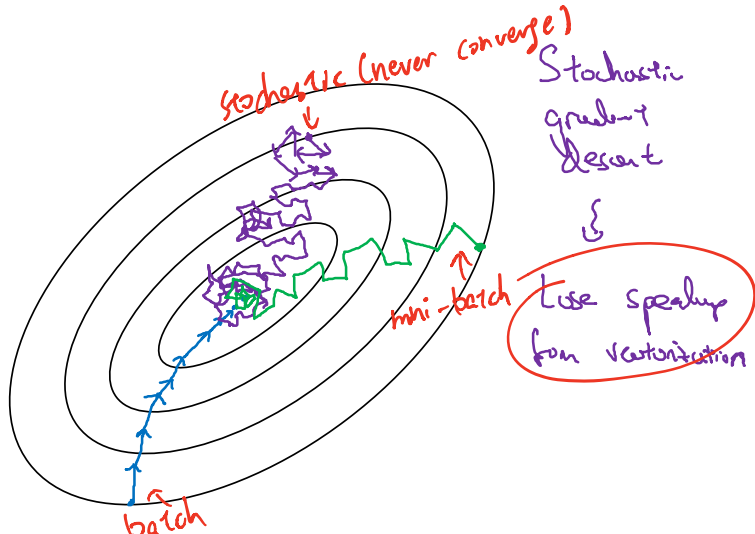 stochastic (never converge)
Stochastic
gradient
descent
mini-batch
Lose speedup
from vectorization
batch